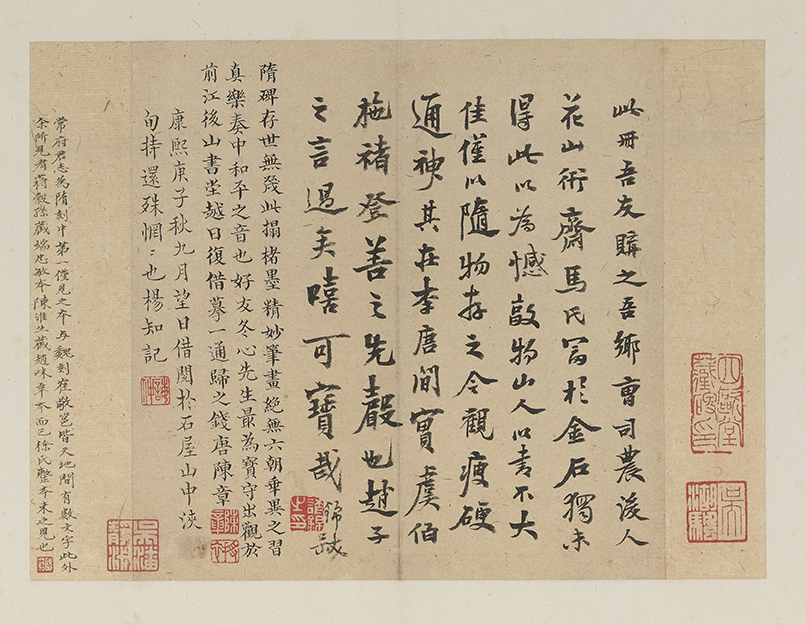 此冊吾友購之吾鄉曹司農後人
花山術齋馬氏富於金石獨未
得此以為憾敲物山人以書不大
佳僅以隨物存之今觀瘦硬
通神其在李唐間實虞伯
施褚登善之先聲也趙子
之言過矣嘻可寶哉
錦誠
隋碑存世無幾此搨楮墨精妙筆畫絕無六朝乖異之習
真樂奏中和平之音也好友冬心先生最為寶守出觀於
前江後山書堂越日復借摹一通歸之錢唐陳章
康熙庚子秋九月望日借閱於石屋山中浹
旬持還殊惘〻也楊知記
常府君志為隋刻中第一僅見之本与魏刻崔敬邕皆天地間有數文字此外
余所見者蔣穀孫藏端忠敏本陳淮生藏趙味辛本而已徐氏整本未之見也